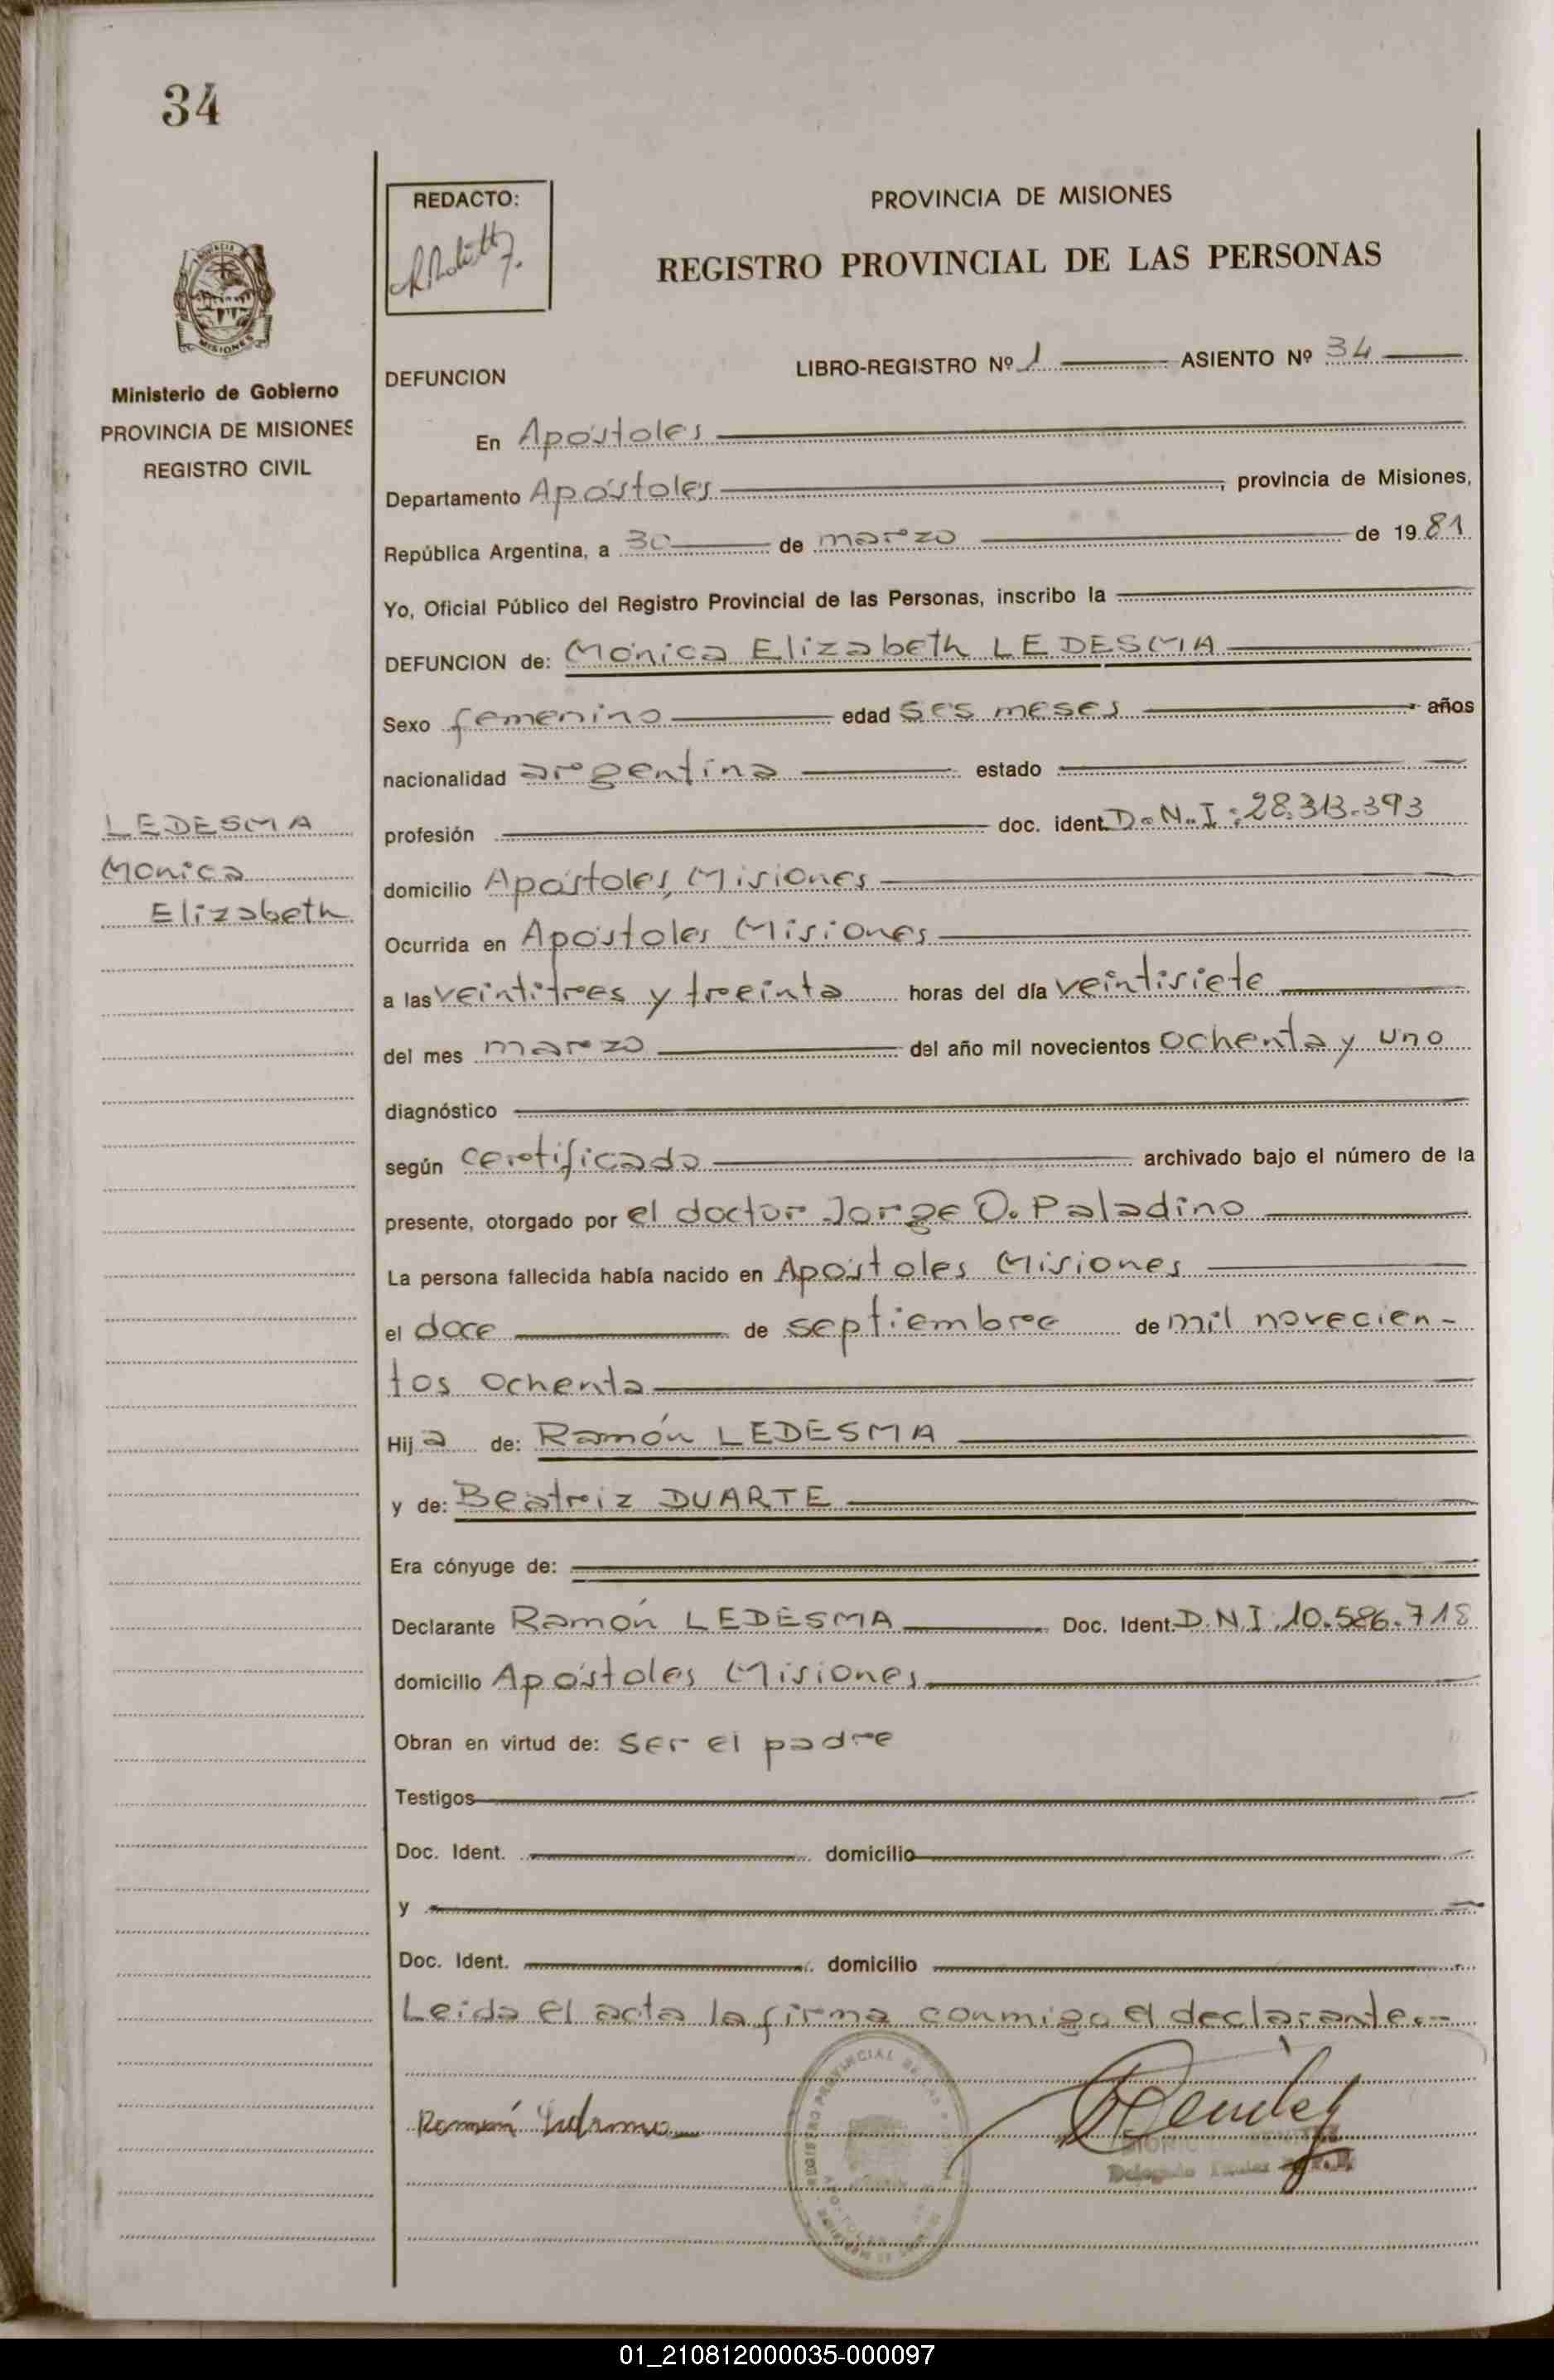 34
REDACTO:
PROVINCIA DE MISIONES
REGISTRO PROVINCIAL DE LAS PERSONAS
MISIONES
Ministerio de Gobierno
PROVINCIA DE MISIONES
REGISTRO CIVIL
DEFUNCION
LIBRO-REGISTRO Nº 1 ASIENTO Nº 34
En Apóstoles
Departamento Apóstoles, provincia de Misiones,
República Argentina, a 30 de marzo de 1981
Yo, Oficial Público del Registro Provincial de las Personas, inscribo la
DEFUNCION de: Mónica Elizabeth LEDESMA
Sexo femenino edad seis meses años
nacionalidad argentina estado
LEDESMA
Monica
Elizabeth
profesión doc. ident. D.N.I: 28.313.393
domicilio Apóstoles, Misiones
Ocurrida en Apóstoles Misiones
a las veintitres y treinta horas del día veintisiete
del mes marzo del año mil novecientos ochenta y uno
diagnóstico
según certificado archivado bajo el número de la
presente, otorgado por el doctor Jorge O. Paladino
La persona fallecida había nacido en Apóstoles Misiones
el doce de septiembre de mil novecien-
tos ochenta
Hij a de: Ramón LEDESMA
y de: Beatriz DUARTE
Era cónyuge de:
Declarante Ramón LEDESMA Doc. Ident. D.N.I. 10.586.718
domicilio Apóstoles Misiones
Obran en virtud de: ser el padre
Testigos
Doc. Ident. domicilio
y
Doc. Ident. domicilio
Leida el acta la firma conmigo el declarante.-
Ramón
01_210812000035-000097